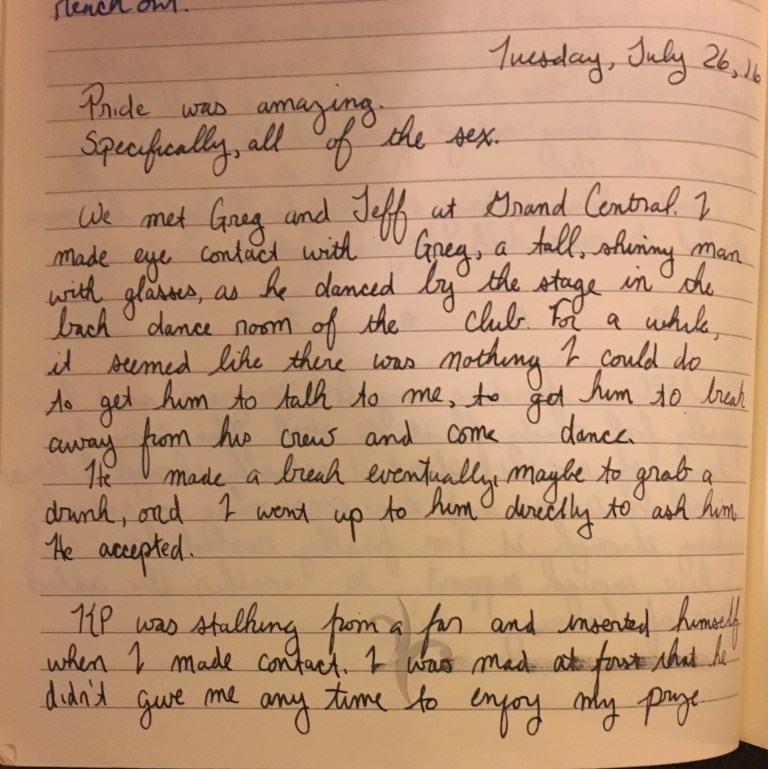 reach out.
Tuesday, July 26, 16
Pride was amazing.
Specifically, all of the sex.
We met Greg and Jeff at Grand Central. I
made eye contact with Greg, a tall, shinny man
with glasses, as he danced by the stage in the
back dance room of the club. For a while,
it seemed like there was nothing I could do
to get him to talk to me, to get him to break
away from his crews and come dance.
He made a break eventually, maybe to grab a
drink, and I went up to him directly to ask him
He accepted.
KP was stalking from a far and inserted himself
when I made contact. I was mad at first that he
didn't give me any time to enjoy my prize